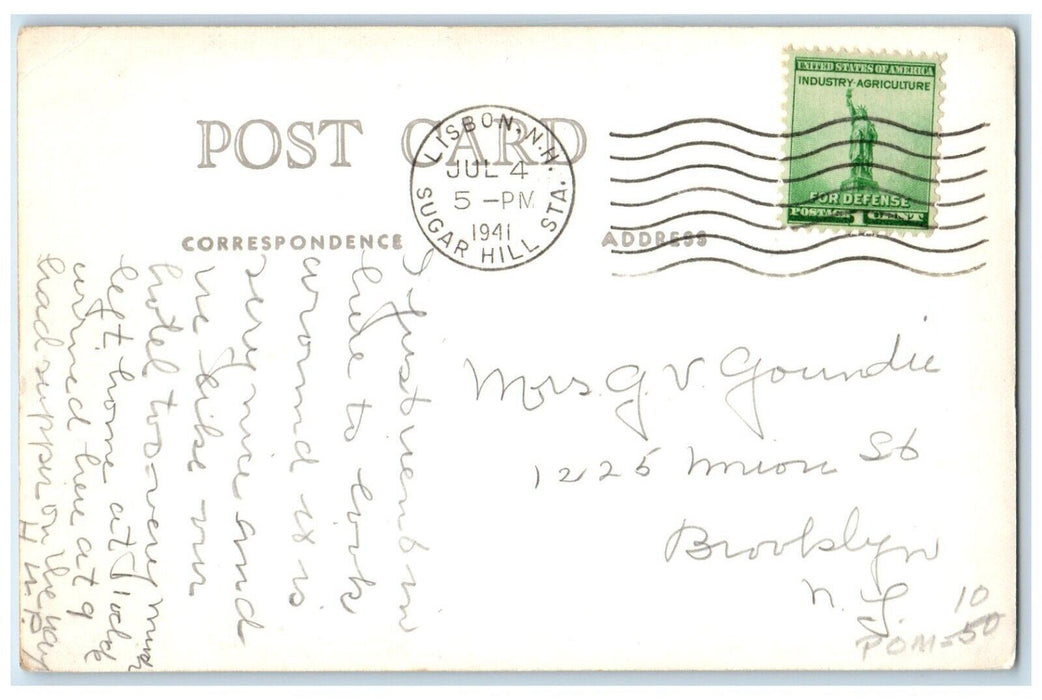 POST CARD
LISBON, N.H.
JUL 4
5 - PM
1941
SUGAR HILL STA.
UNITED STATES OF AMERICA
INDUSTRY-AGRICULTURE
FOR DEFENSE
POSTAGE 1 CENT
CORRESPONDENCE
ADDRESS
I just in
here to look
around it is
very nice and
we like our
hotel too - very much
left home at 7 oclock
arrived here at 9
had supper on the way
Mrs G. V. Goundie
1225 Union St
Brooklyn
N. Y.
10
POM-50